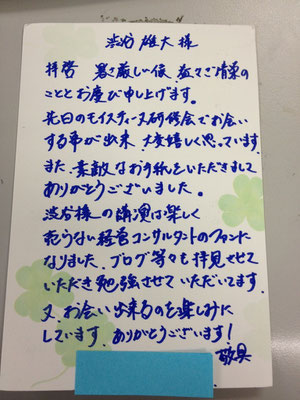 渋谷 雄大 様
拝啓 暑さ厳しい候、益々ご清栄の
こととお慶び申し上げます。
先日のモイスティーヌ研修会でお会い
する事が出来 大変嬉しく思っています。
また、素敵なお手紙をいただきまして
ありがとうございました。
渋谷様の講演は楽しく
売らない経営コンサルタントのファンに
なりました。ブログ等々も拝見させて
いただき勉強させていただいてます。
又、お会い出来るのを楽しみに
しています。ありがとうございます!
敬具